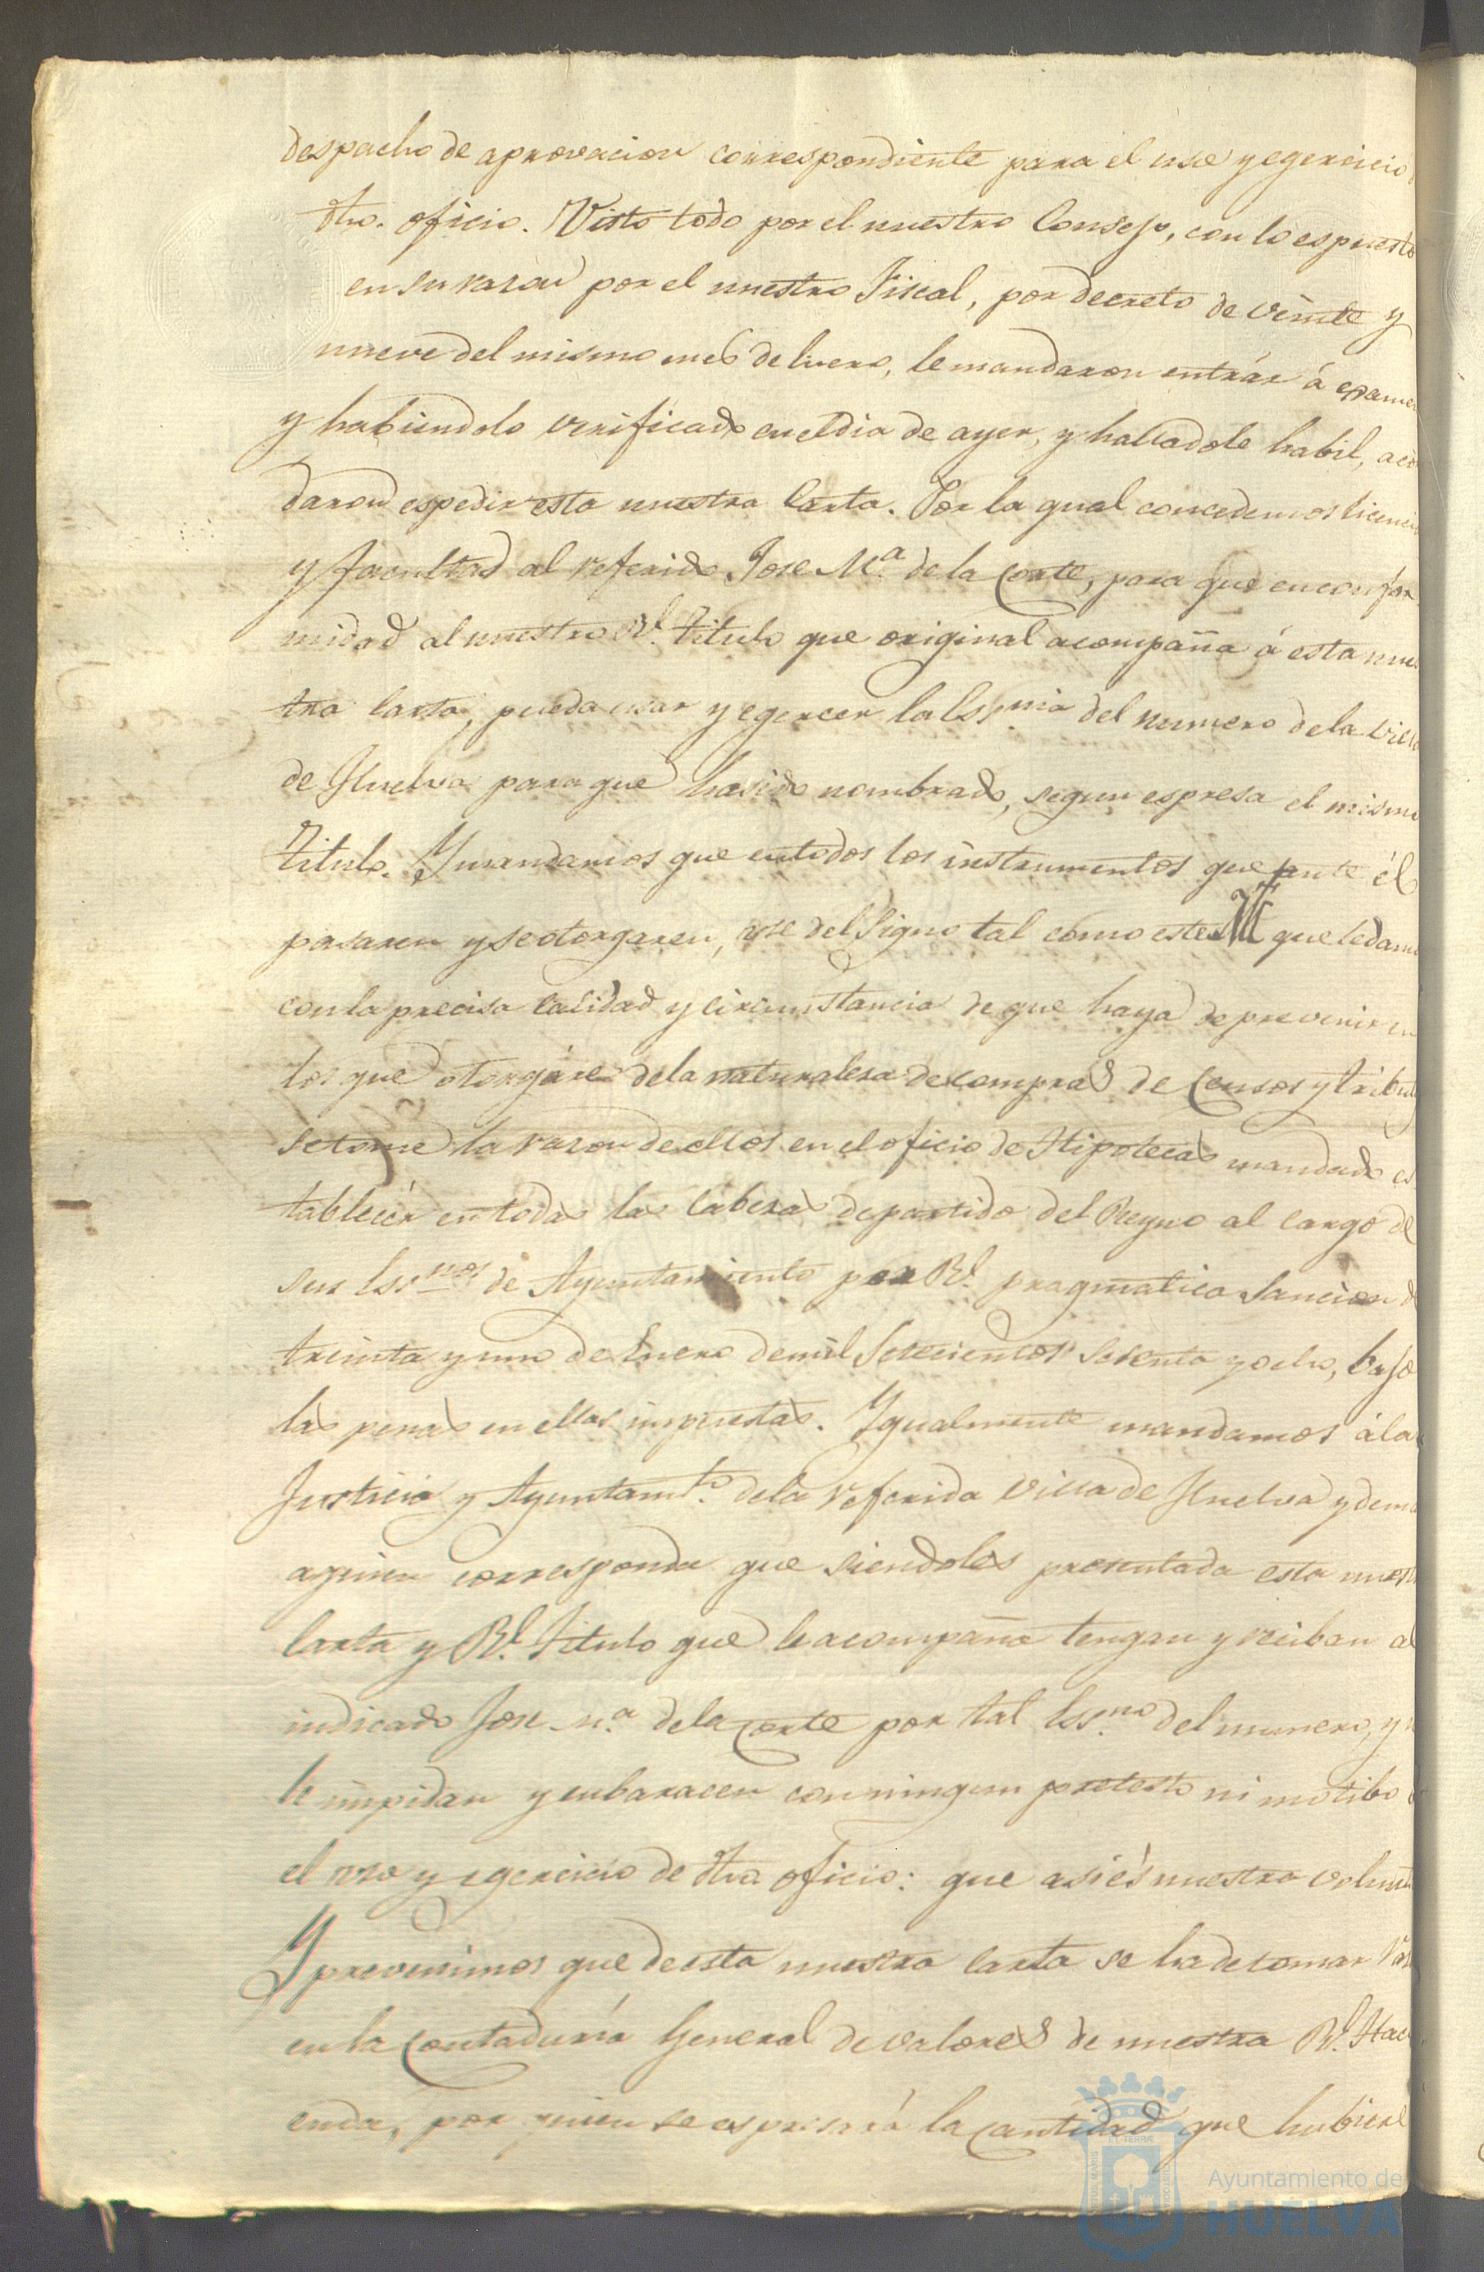 despacho de aprovacion correspondiente para el uso y egercicio
dho. oficio. Visto todo por el nuestro Consejo, con lo espuesto
en su razon por el nuestro Fiscal, por decreto de veinte y
nueve del mismo mes de Enero, le mandaron entrár á examen
y habiendolo verificado en el dia de ayer, y halladole habil, acor
daron espedir esta nuestra Carta. Por la qual concedemos licencia
y facultad al referido Jose M.ª de la Corte, para que en confor
midad al nuestro Rl. Titulo que original acompaña á esta nues
tra Carta, pueda usar y egercer la Essnia del numero de la villa
de Huelva para que ha sido nombrado, segun espresa el mismo
Titulo. Y mandamos que en todos los instrumentos que ante él
pasaren y se otorgaren, use del Signo tal como este que le damos
con la precisa calidad y circunstancia de que haya de prevenir en
los que otorgáre de la naturaleza de compras de Censos y tribut
se tome la razon de ellos en el oficio de Hipotecas mandado es
tablecér en todas las Cabezas de partido del Reyno al cargo de
sus Essnos de Ayuntamiento por Rl. pragmatica Sancion d
treinta y uno de Enero de mil Setecientos sesenta y ocho, bajo
las penas en ellas impuestas. Ygualmente mandamos á la
Justicia y Ayuntamto. de la referida Villa de Huelva y dema
a quien corresponda que siendoles presentada esta nuestr
Carta y Rl. Titulo que le acompaña tengan y reciban al
indicado Jose M.ª de la Corte por tal Essno. del numero, y n
le impidan y embaracen con ningun pretesto ni motibo
el uso y egercicio de dho oficio: que asi és nuestra volunt
Y prevenimos que de esta nuestra Carta se ha de tomar raz
en la Contaduría General de valores de nuestra Rl. Haci
enda, por quien se espresará la cantidad que hubiere
Ayuntamiento de
HUELVA